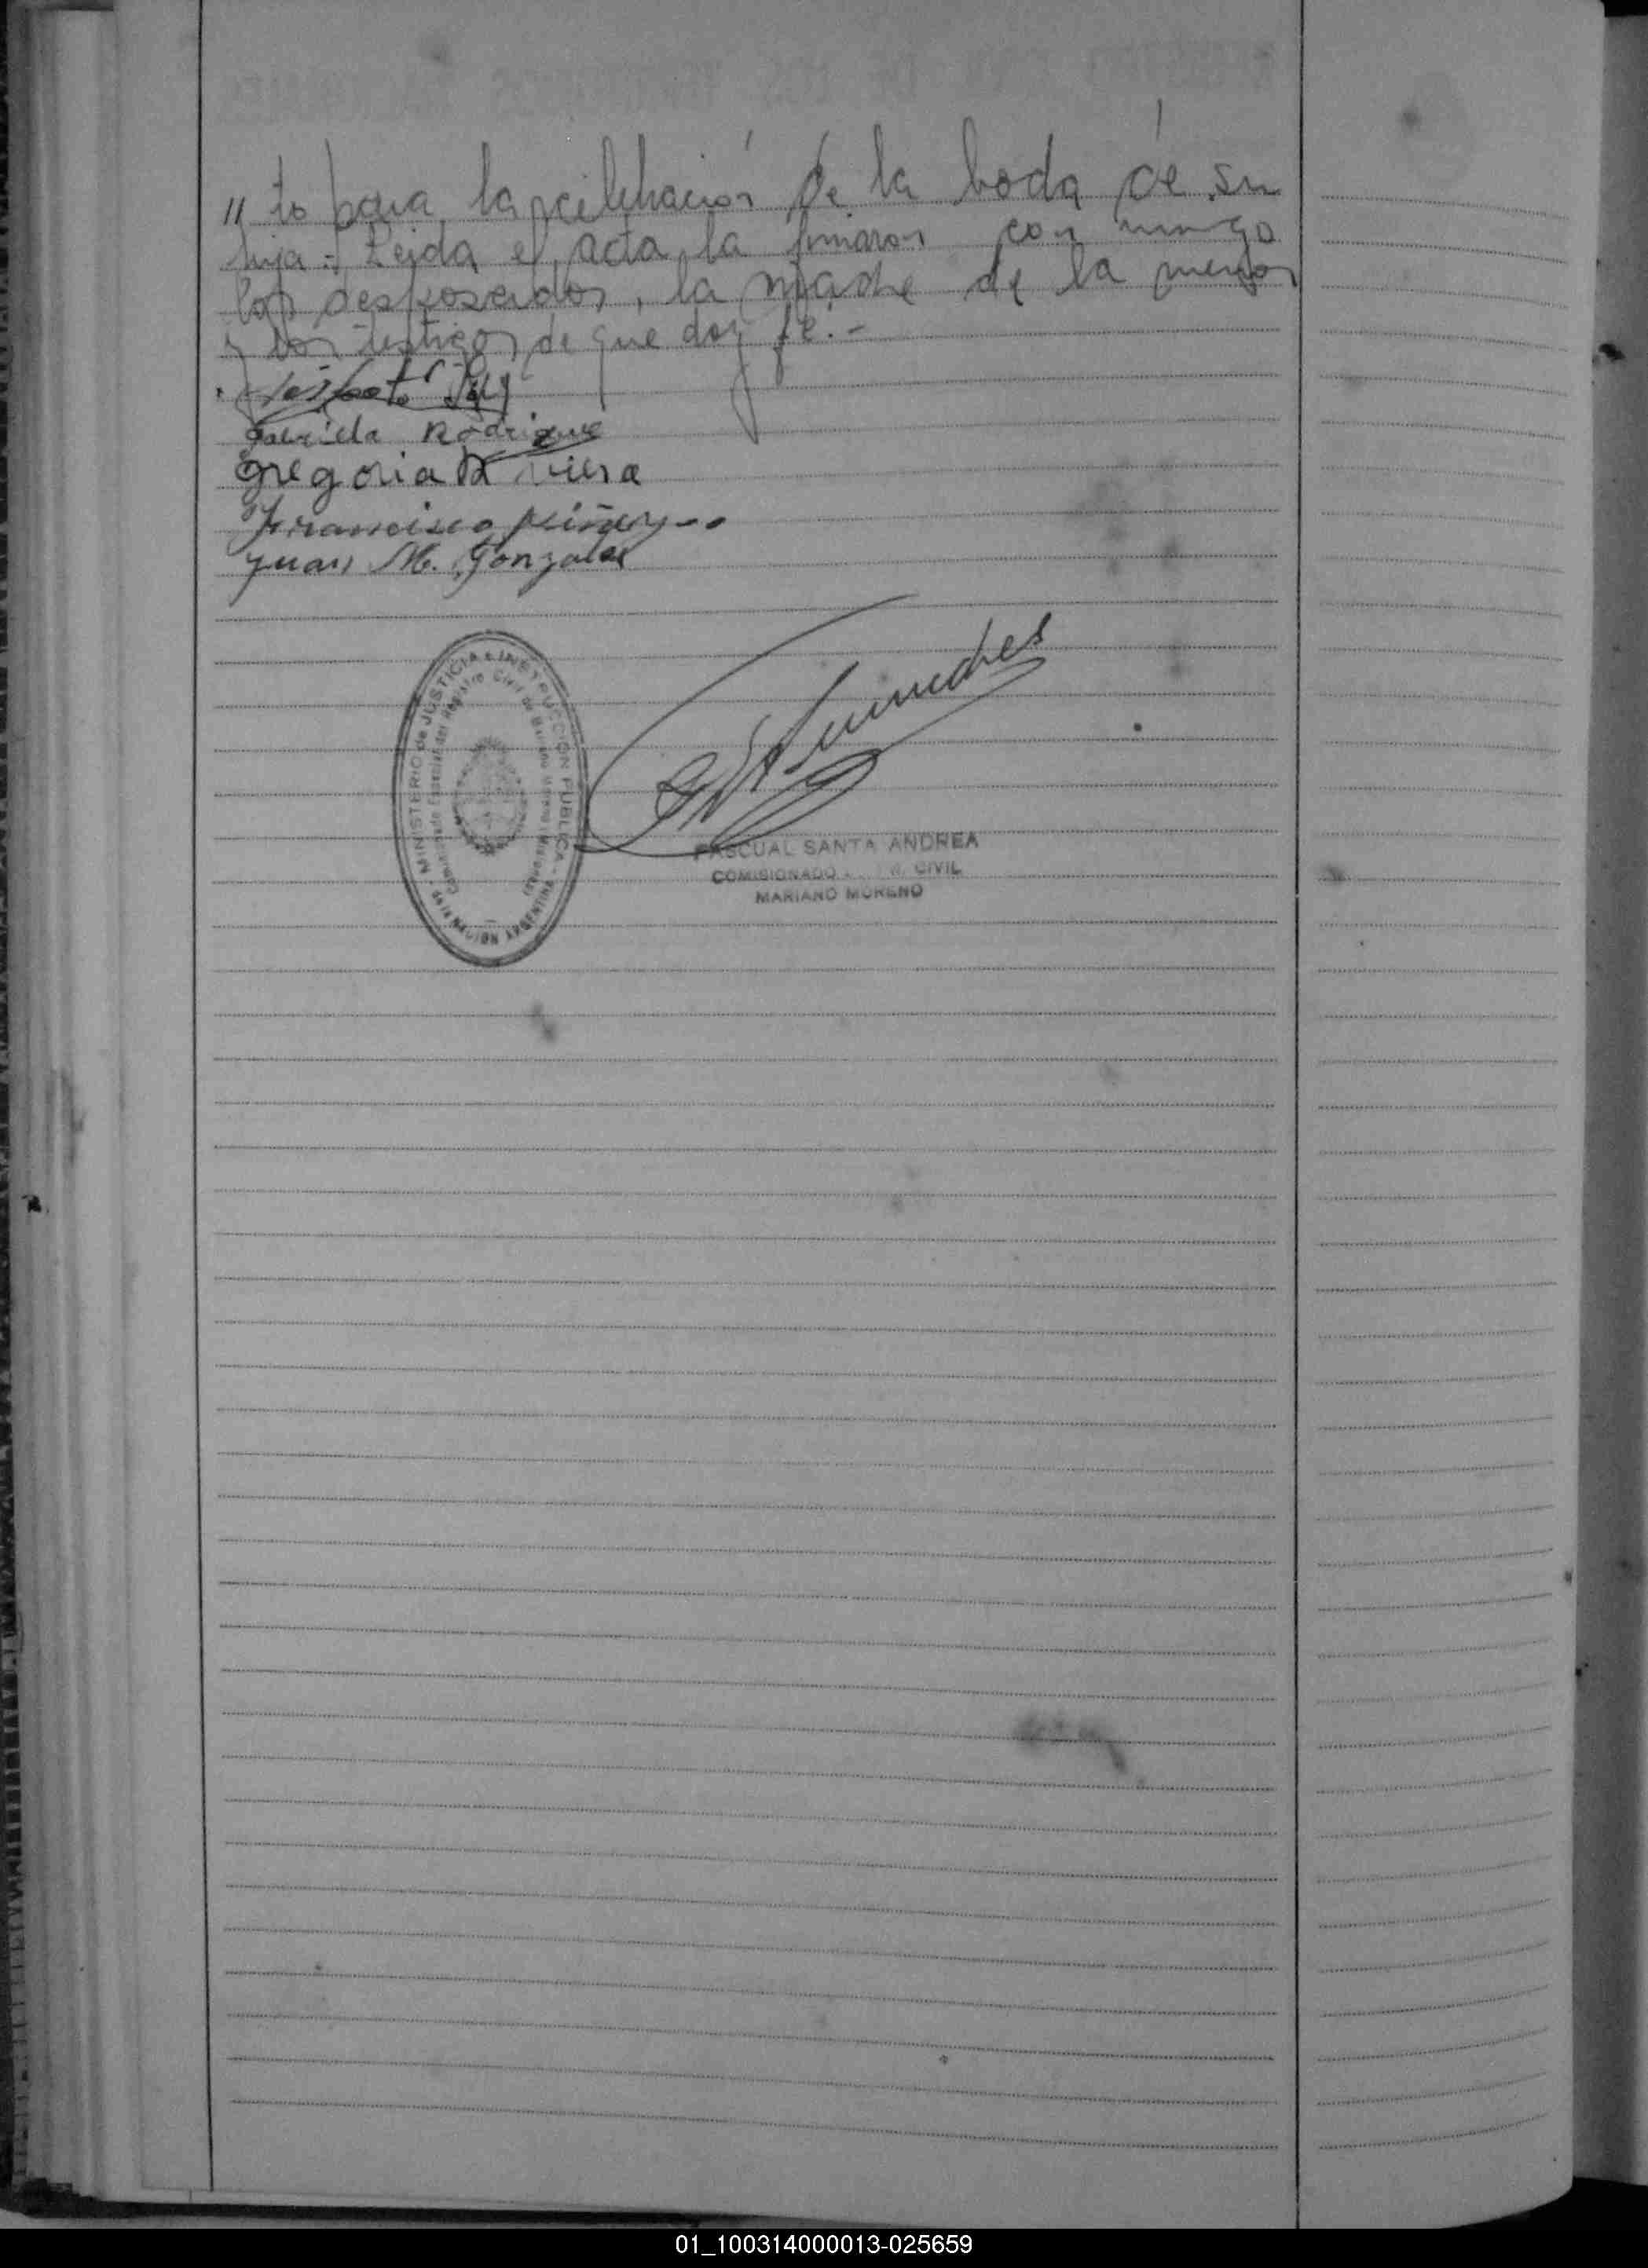 " to para la celebración de la boda de su
hija.- Leida el acta la firmaron con migo
los desposados, la madre de la menor
y los testigos de que doy fe.-
Gabriela Rodriguez
Gregoria R Viera
Francisco
Juan M. Gonzalez
MINISTERIO de JUSTICIA e INSTRUCCION PUBLICA
Registro Civil de Mariano Moreno (Misiones)
ARGENTINA
PASCUAL SANTA ANDREA
COMISIONADO CIVIL
MARIANO MORENO
01_100314000013-025659